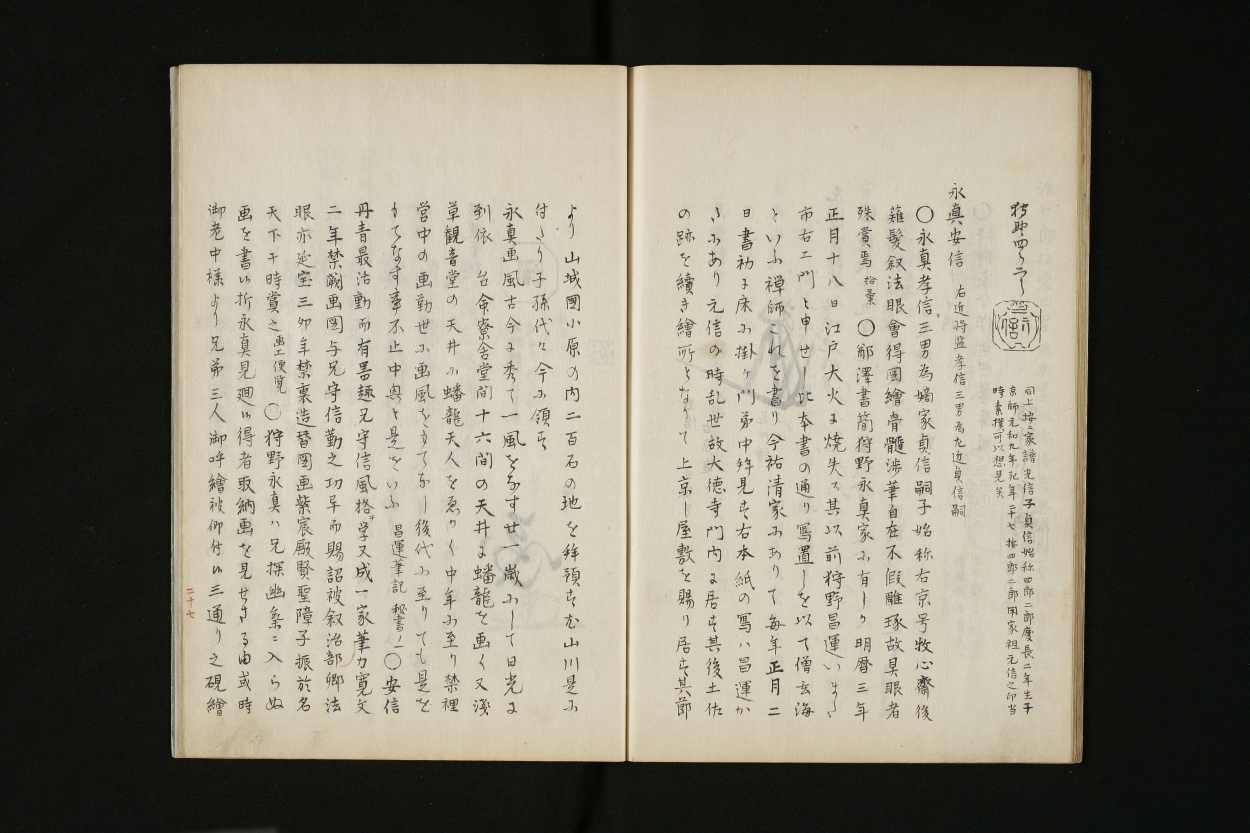 狩野四らニらう
同上按家譜光信子貞信始称四郎二郎慶長二年生于
京師元和九年死年二十七按四郎二郎用家祖元信之印当
時素撲可以想見矣
永真安信 右近将監孝信三男為左近貞信嗣
〇永真孝信三男為嫡家貞信嗣子始称右京号牧心齋後
薙髪叙法眼會得國繪骨髓渉筆自在不假雕琢故具眼者
殊賞焉 拾彙 〇鄙澤書簡狩野永真家ニ有しり明暦三年
正月十八日江戸大火に焼失ス其以前狩野昌運いまた
市右エ門と申せし比本書の通り寫置しを以て僧玄海
といふ禅師これを書り今祐清家ニありて毎年正月二
日書初に床ニ掛ヶ門弟中拝見す右本紙の寫ハ昌運か
ニあり元信の時乱世故大徳寺門内に居す其後土佐
の跡を續き繪所となりて上京し屋敷を賜り居す其節
より山城國小原の内二百石の地を拝領す山川是ニ
付たり子孫代々今ニ領す
永真画風古今に秀て一風をなす廿一歳ニして日光に
到依 台命寮舎堂間十六間の天井に蟠龍を画く又浅
草観音堂の天井ニ蟠龍天人をゑかく中年ニ至り禁裡
営中の画勤世ニ画風をもてなし後代ニ至りても是を
もてなす事不止中興と是をいふ 昌運筆記 秘書ノ一 〇安信
丹青最活動而有畧趣兄守信風格ヲ学又成一家筆力寛文
二年禁闕画図与兄守信勤之功早而賜詔被叙治部卿法
眼亦延宝三卯年禁裏造替図画紫宸殿賢聖障子振於名
天下于時賞之 画工便覧 〇狩野永真ハ兄探幽気ニ入らぬ
画を書い折永真見廻い得者取納画を見せさる由或時
御老中様より兄弟三人御呼繪被仰付い三通り之硯繪
二十七